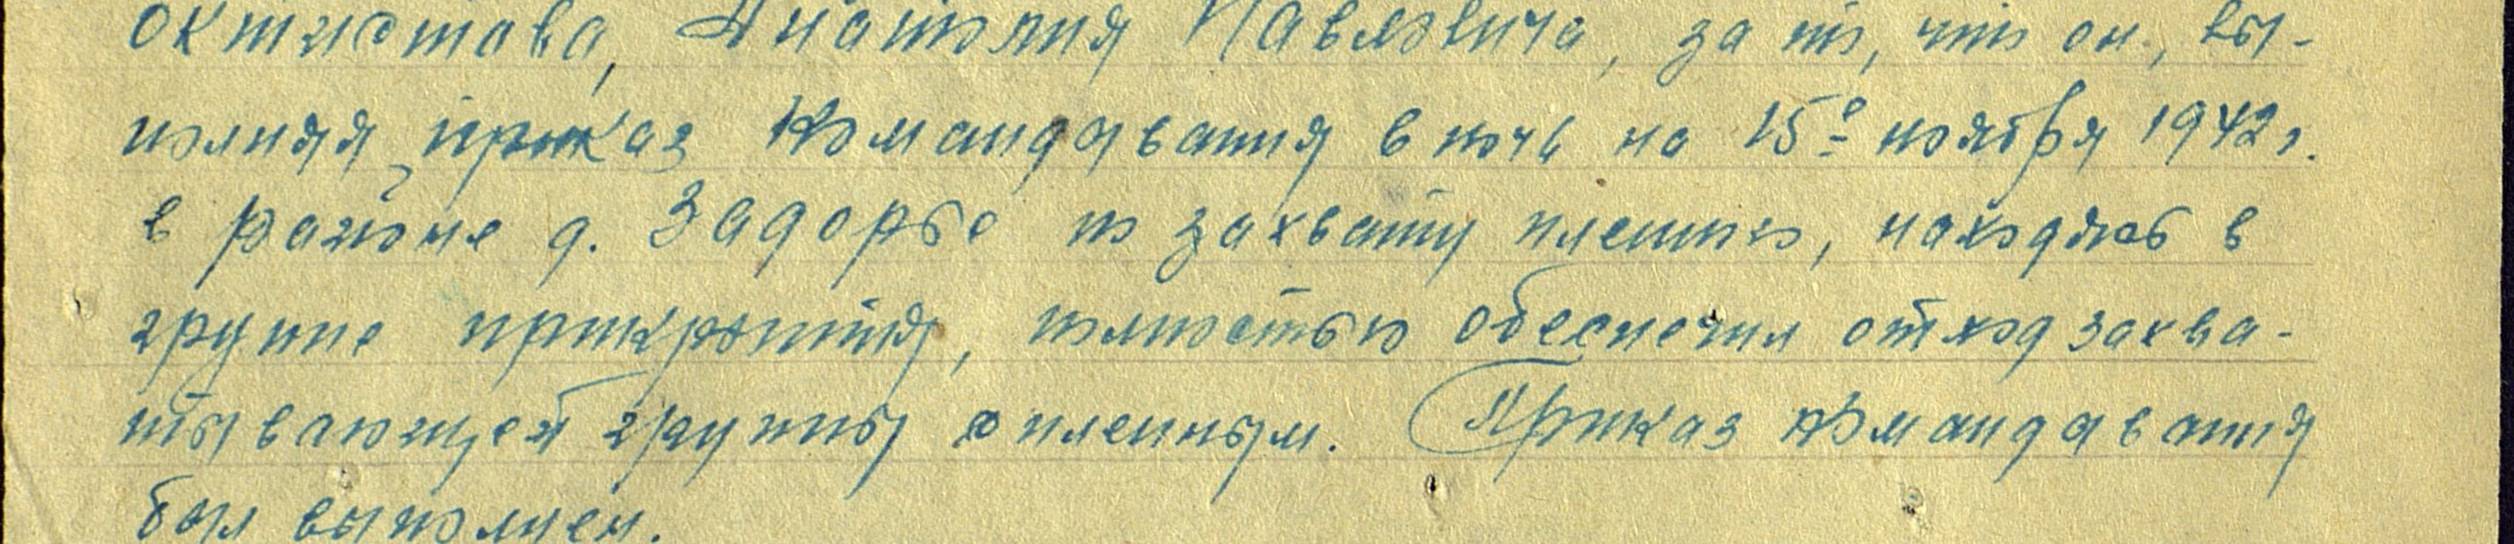 октистова, Анатолия Павловича, за то, что он, вы-
полняя приказ командования в ночь на 15е ноября 1942г.
в районе д. Задорье по захвату пленного, находясь в
группе прикрытия, полностью обеспечил отход захва-
тывающей группы с пленным. Приказ командования
был выполнен.